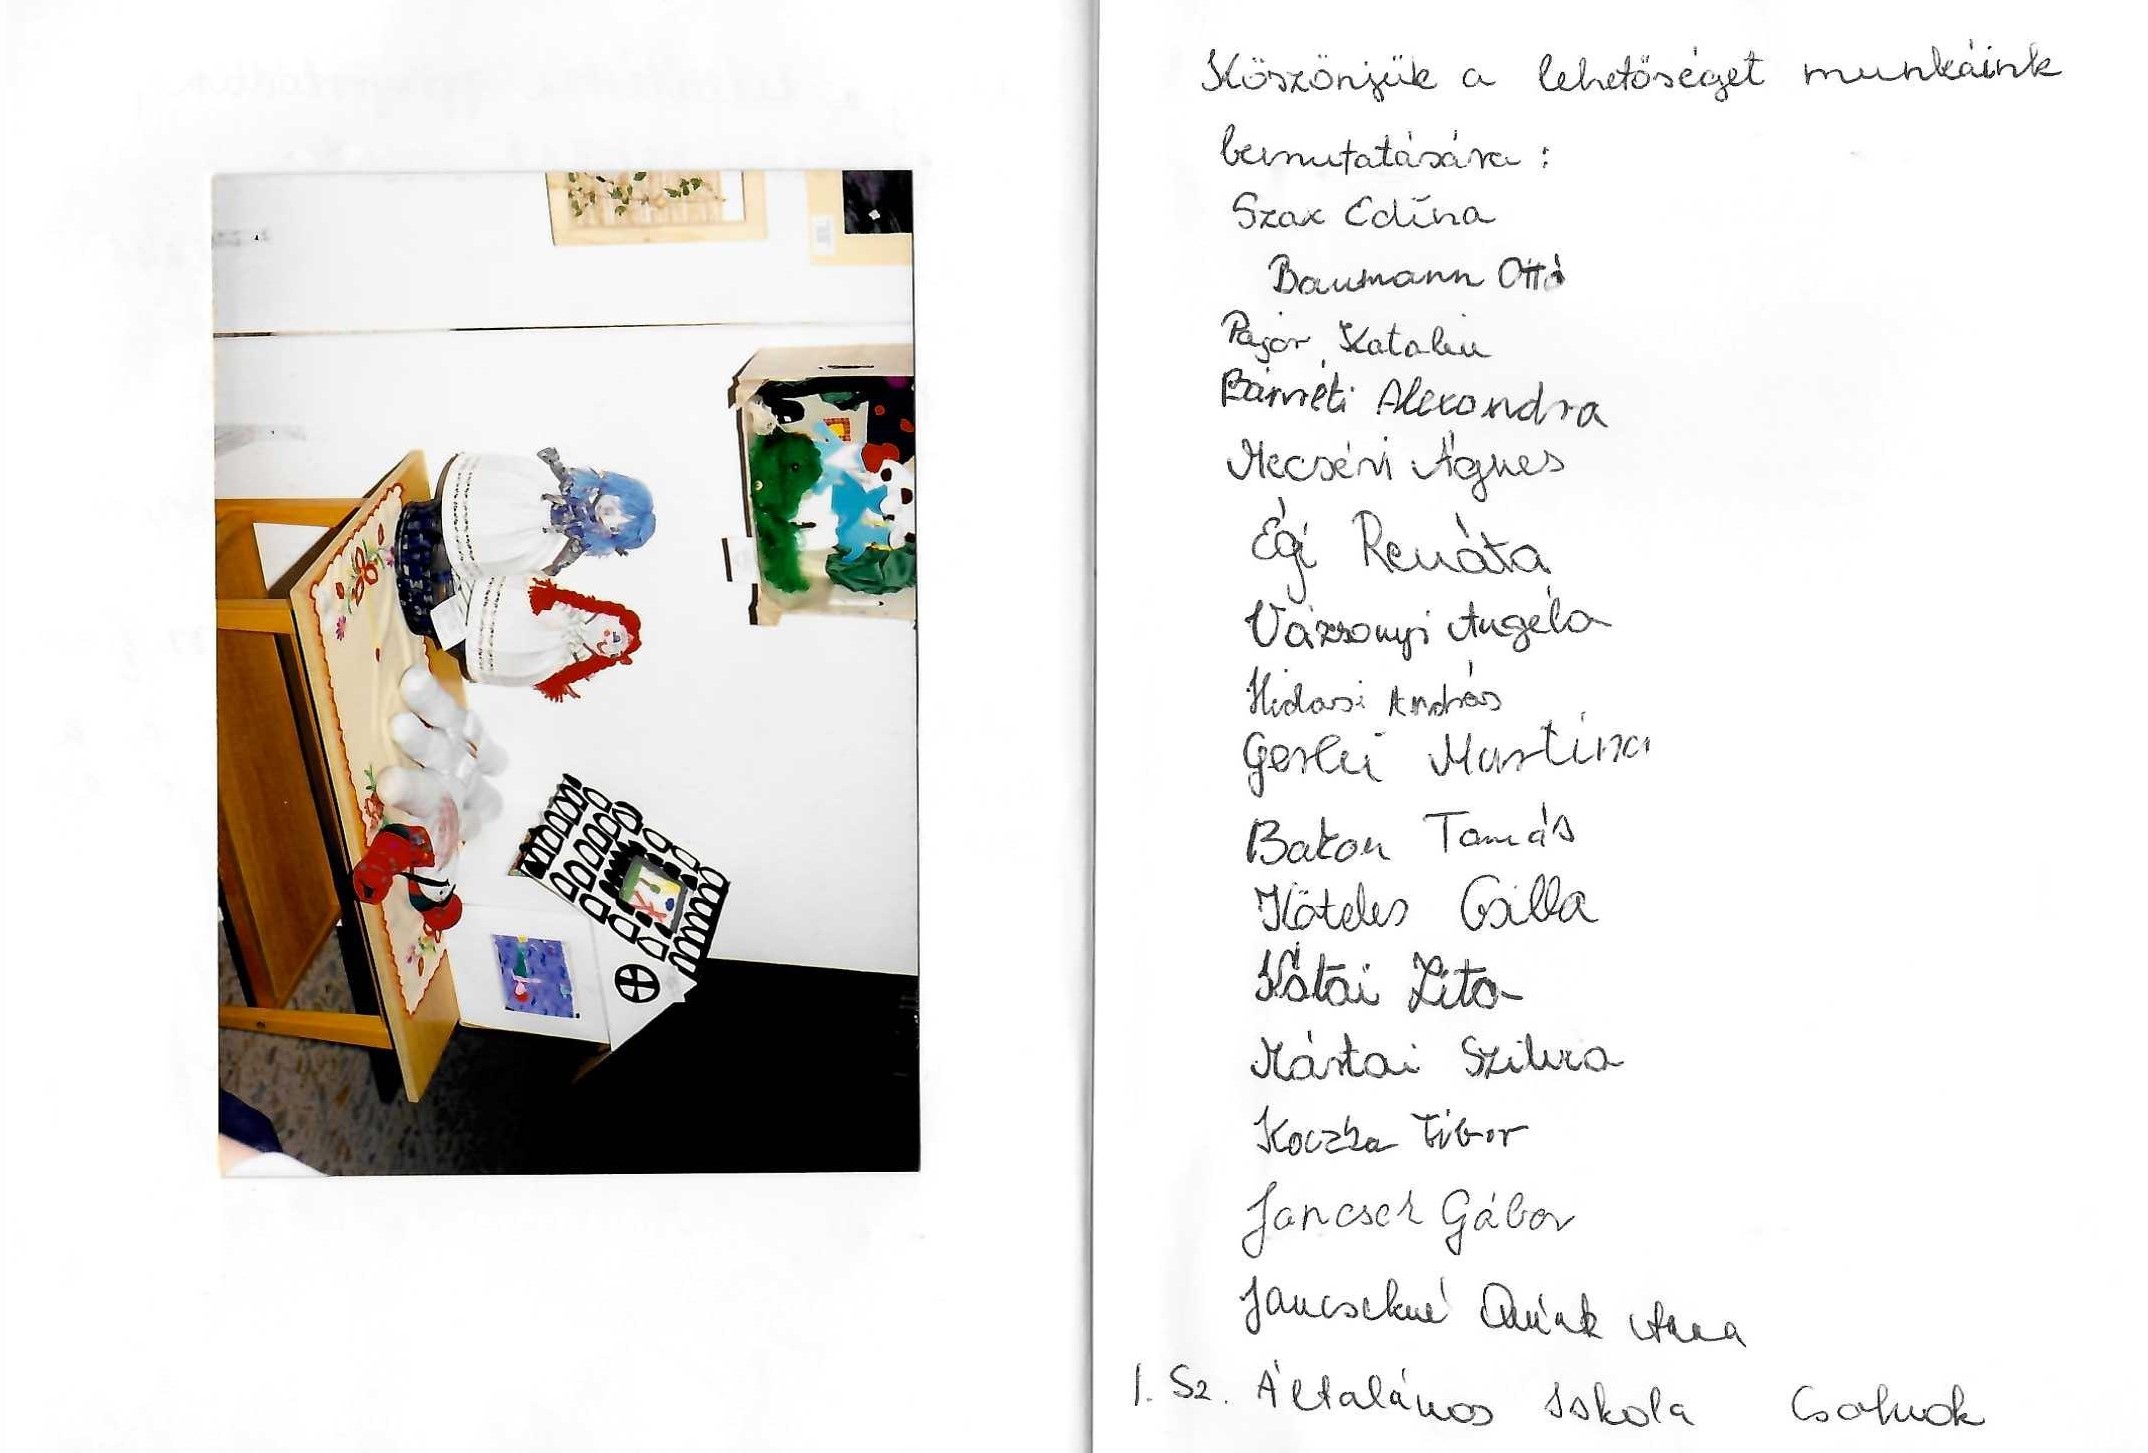 Köszönjük a lehetőséget munkáink
bemutatására :
Szax Edina
Baumann Ottó
Pajor Katalin
Bánréti Alexandra
Mecséri Ágnes
Égi Renáta
Vázsonyi Angéla
Hidasi András
Gerlei Martina
Bakon Tamás
Köteles Csilla
Kátai Zita
Mártai Szilvia
Koczka Tibor
Jancsek Gábor
Jancsekné Anna
1. Sz. Általános Iskola Csolnok